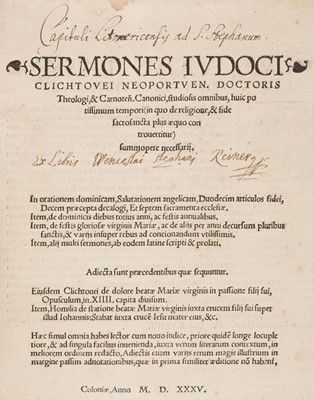 Capituli Litomericensis ad S. Stephanum.
SERMONES IVDOCI
CLICHTOVEI NEOPORTVEN. DOCTORIS
Theologi, & Carnoteñ. Canonici, studiosis omnibus, huic po
tissimum tempori (in quo de religione, & fide
sacrosancta plus æquo con
trouertitur)
summopere necessarij.
Ex Libris Wenceslai Stephani
In orationem dominicam, Salutationem angelicam, Duodecim articulos fidei,
Decem præcepta decalogi, Et septem sacramenta ecclesiæ.
Item, de dominicis diebus totius anni, ac festis annualibus.
Item, de festis gloriosæ virginis Mariæ, ac de alijs per anni decursum pluribus
sanctis, & varijs insuper rebus ad concionandum vtilissimis.
Item, alij multi sermones, ab eodem latine scripti & prolati.
Adiecta sunt præcedentibus quæ sequuntur.
Eiusdem Clichtouei de dolore beatæ Mariæ virginis in passione filij sui,
Opusculum, in XIIII, capita diuisum.
Item, Homilia de statione beatæ Mariæ virginis iuxta crucem filij sui super
illud Iohannis: Stabat iuxta crucē Iesu mater eius, &c.
Hæc simul omnia habes lector cum nouo indice, priore quidē longe locuple
tiore, & ad singula facilius inuenienda, iuxta verum literarum contextum, in
meliorem ordinem redacto, Adiectis etiam varijs rerum magis illustrium in
margine passim adnotationibus, quæ in prima similiter æditione nō habent,
Coloniæ, Anno M. D. XXXV.